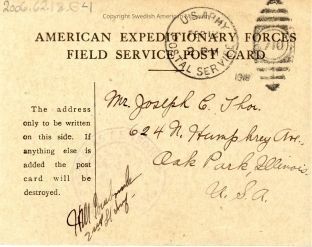 2006.62.13.641
Copyright Swedish American
AMERICAN EXPEDITIONARY FORCES
FIELD SERVICE POST CARD
U.S. ARMY
POSTAL SERVICE
1918
710
The address
only to be written
on this side. If
anything else is
added the post
card will be
destroyed.
Mr. Joseph C. Thor.
624 N. Humphrey Ave.
Oak Park, Illinois.
U.S.A.